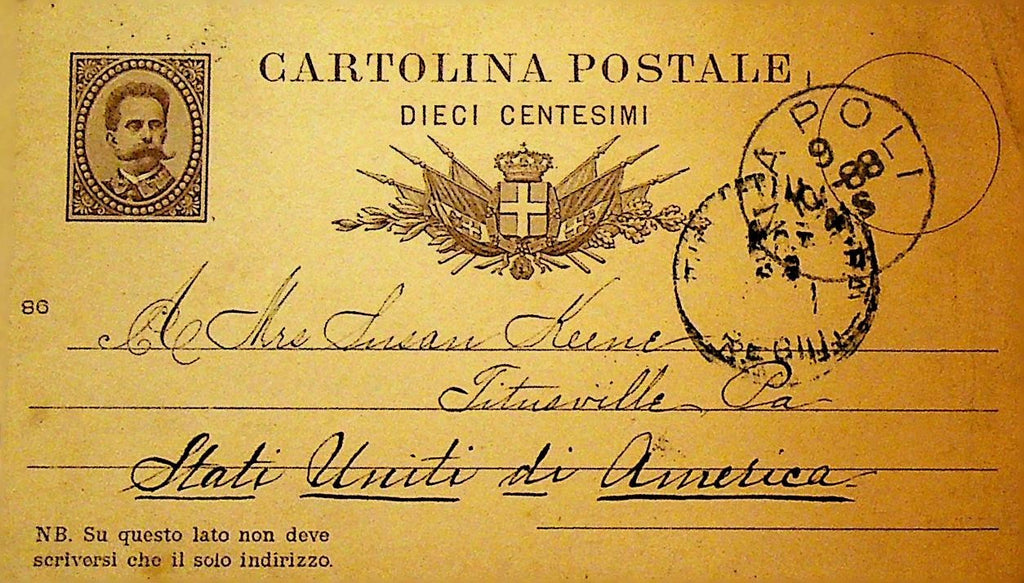 CARTOLINA POSTALE
DIECI CENTESIMI
NAPOLI
9
88
8S
86
A Mrs Susan Keene
Titusville Pa
Stati Uniti di America
NB. Su questo lato non deve
scriversi che il solo indirizzo.